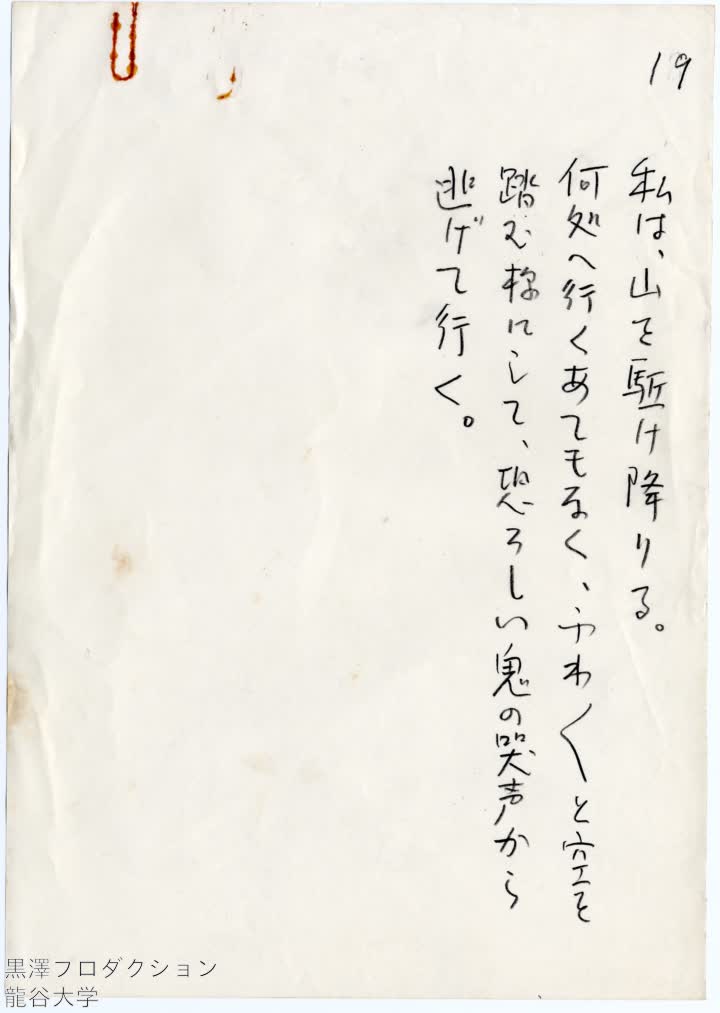 19
私は、山を駈け降りる。
何処へ行くあてもなく、ふわ〱と空を
踏む様にして、恐ろしい鬼の哭声から
逃げて行く。
黒澤プロダクション
龍谷大学